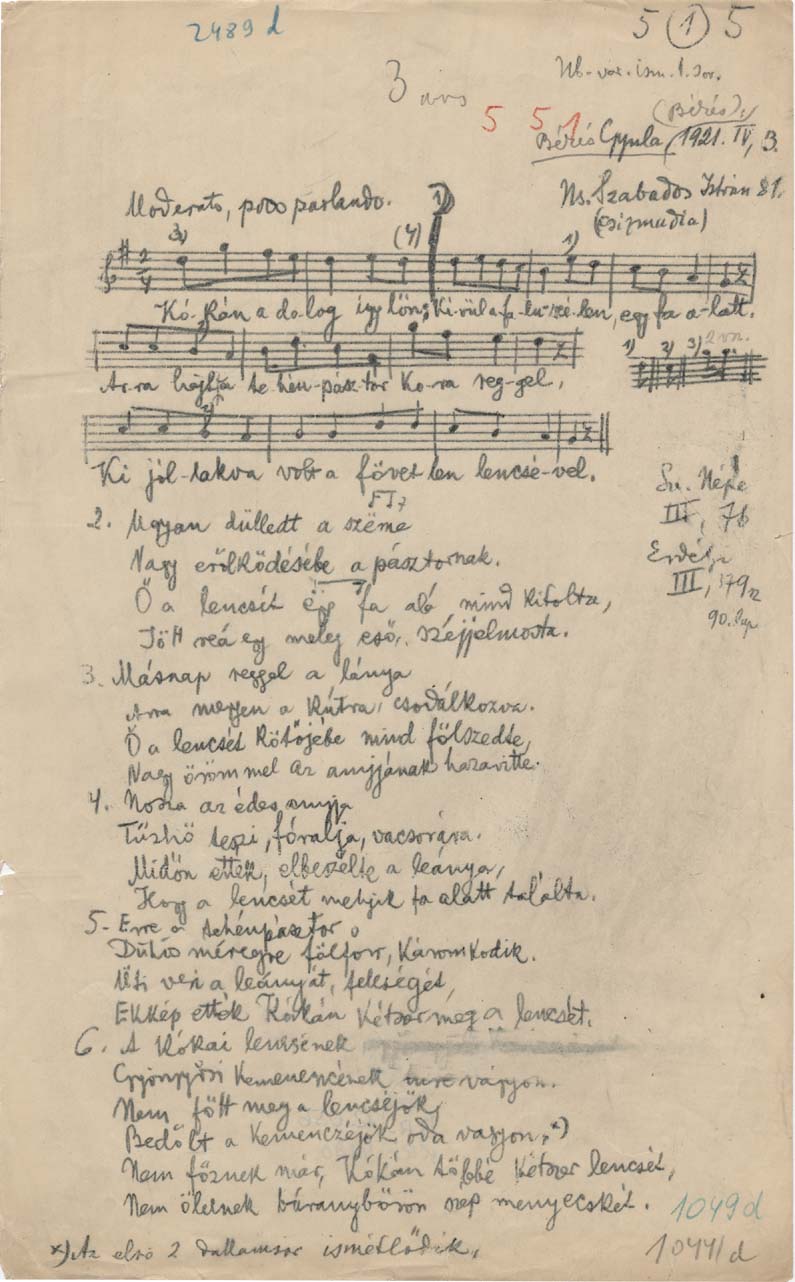 2489 d
5 (1) 5
3 
5 5 1
(Békés)
Békés Gyula, 1921. IV, 3.
Moderato, poco parlando.
Ns. Szabados István 81.
(csizmadia)
3) (4) 1) 1)
Kó-kán a do-log így lőn; Ki-vül a fa-lu szé-len, egy fa a-latt.
1) 2) 3) 2 vsz.
Ar-ra hajtja te-hén-pász-tor Ko-ra reg-gel,
2)
Ki jól-lakva volt a fövet-len lencsé-vel.
III, 76
Erdélyi
III, 179
90. lap
2. Ugyan dülledt a szëme
Nagy erőlködésébe a pásztornak.
Ő a lencsét épp fa aló mind kitolta,
Jött reá egy meleg eső, széjjelmosta.
3. Másnap reggel a lánya
Arra megyen a kútra, csodálkozva.
Ő a lencsét kötőjébe mind fölszedte,
Nagy örömmel az anyjának hazavitte.
4. Nosza az édes anyja
Tűzhö teszi, fóralja, vacsorára.
Midőn ették, elbeszélte a leánya,
Hogy a lencsét melyik fa alatt találta.
5. Erre a tehénpásztor
Dühös méregre fölforr, káromkodik.
Üti veri a leányát, feleségét,
Ekkép ették Kókán kétszer meg a lencsét.
6. A kókai lencsének
Gyöngyösi kemencének vagyon.
Nem főtt meg a lencséjök,
Bedőlt a kemenczéjök oda vagyon. x)
Nem főznek már, Kókán többé kétszer lencsét,
Nem ölelnek báránybőrön szép menyecskét.
1049 d
1044/d
x) Az első 2 dallamsor ismétlődik.